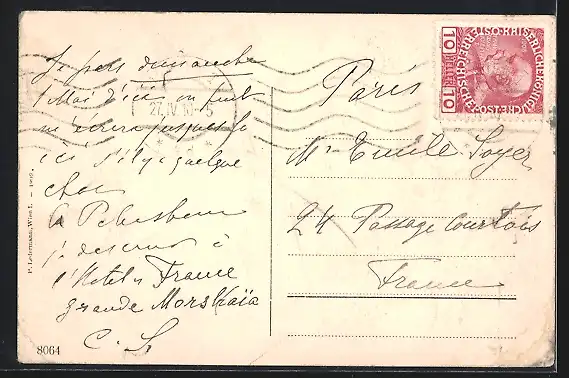 Je pars dimanche
1 Mai d'ici on peut
m'écrire jusque là
ici s'il y a quelque
chose
A Petersbourg
je descends à
l'Hotel France
grande Morskaïa
C. S.
27.IV.10
P. Ledermann, Wien I. - 1909.
8064
KAISERLICHE KÖNIGLICHE ÖSTERREICHISCHE POST
10 HELLER 10
Paris
Mr Emile Soyer
24 Passage Courtois
France